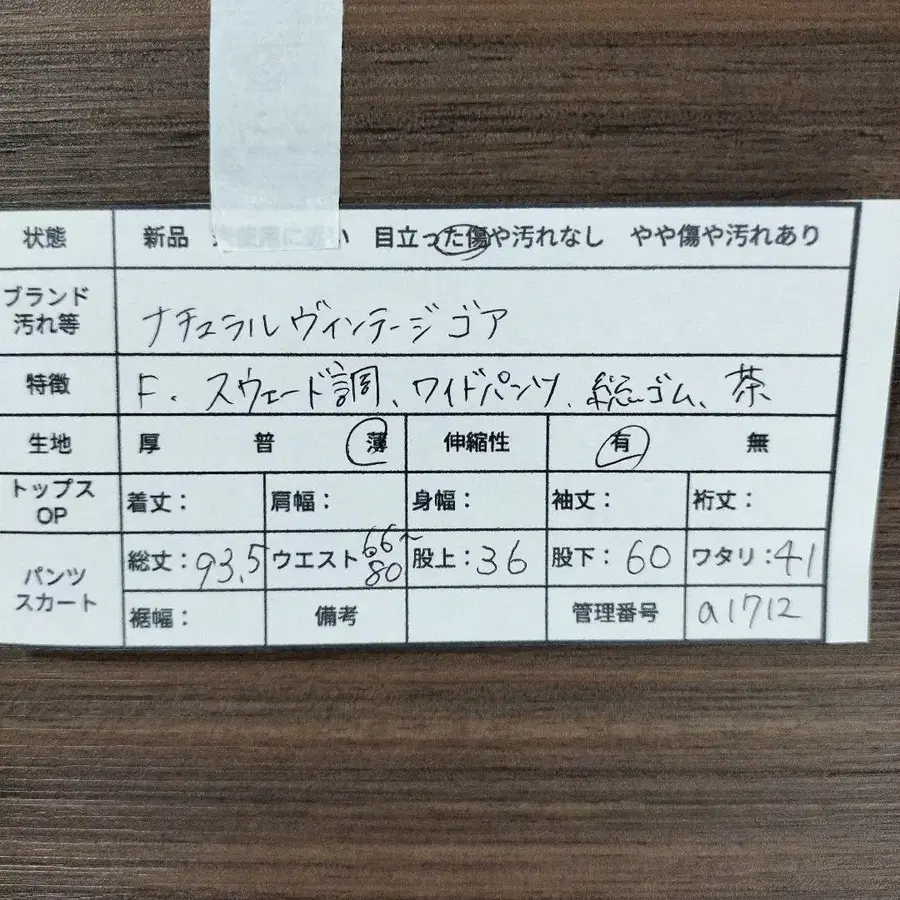 状態 新品 未使用に近い 目立った傷や汚れなし やや傷や汚れあり
ブランド
汚れ等 ナチュラルヴィンテージゴア
特徴 F、スウェード調、ワイドパンツ、総ゴム、茶
生地 厚 普 薄 伸縮性 有 無
トップス
OP 着丈: 肩幅: 身幅: 袖丈: 裄丈:
パンツ
スカート 総丈:93.5 ウエスト66~80 股上:36 股下:60 ワタリ:41
裾幅: 備考 管理番号 a1712